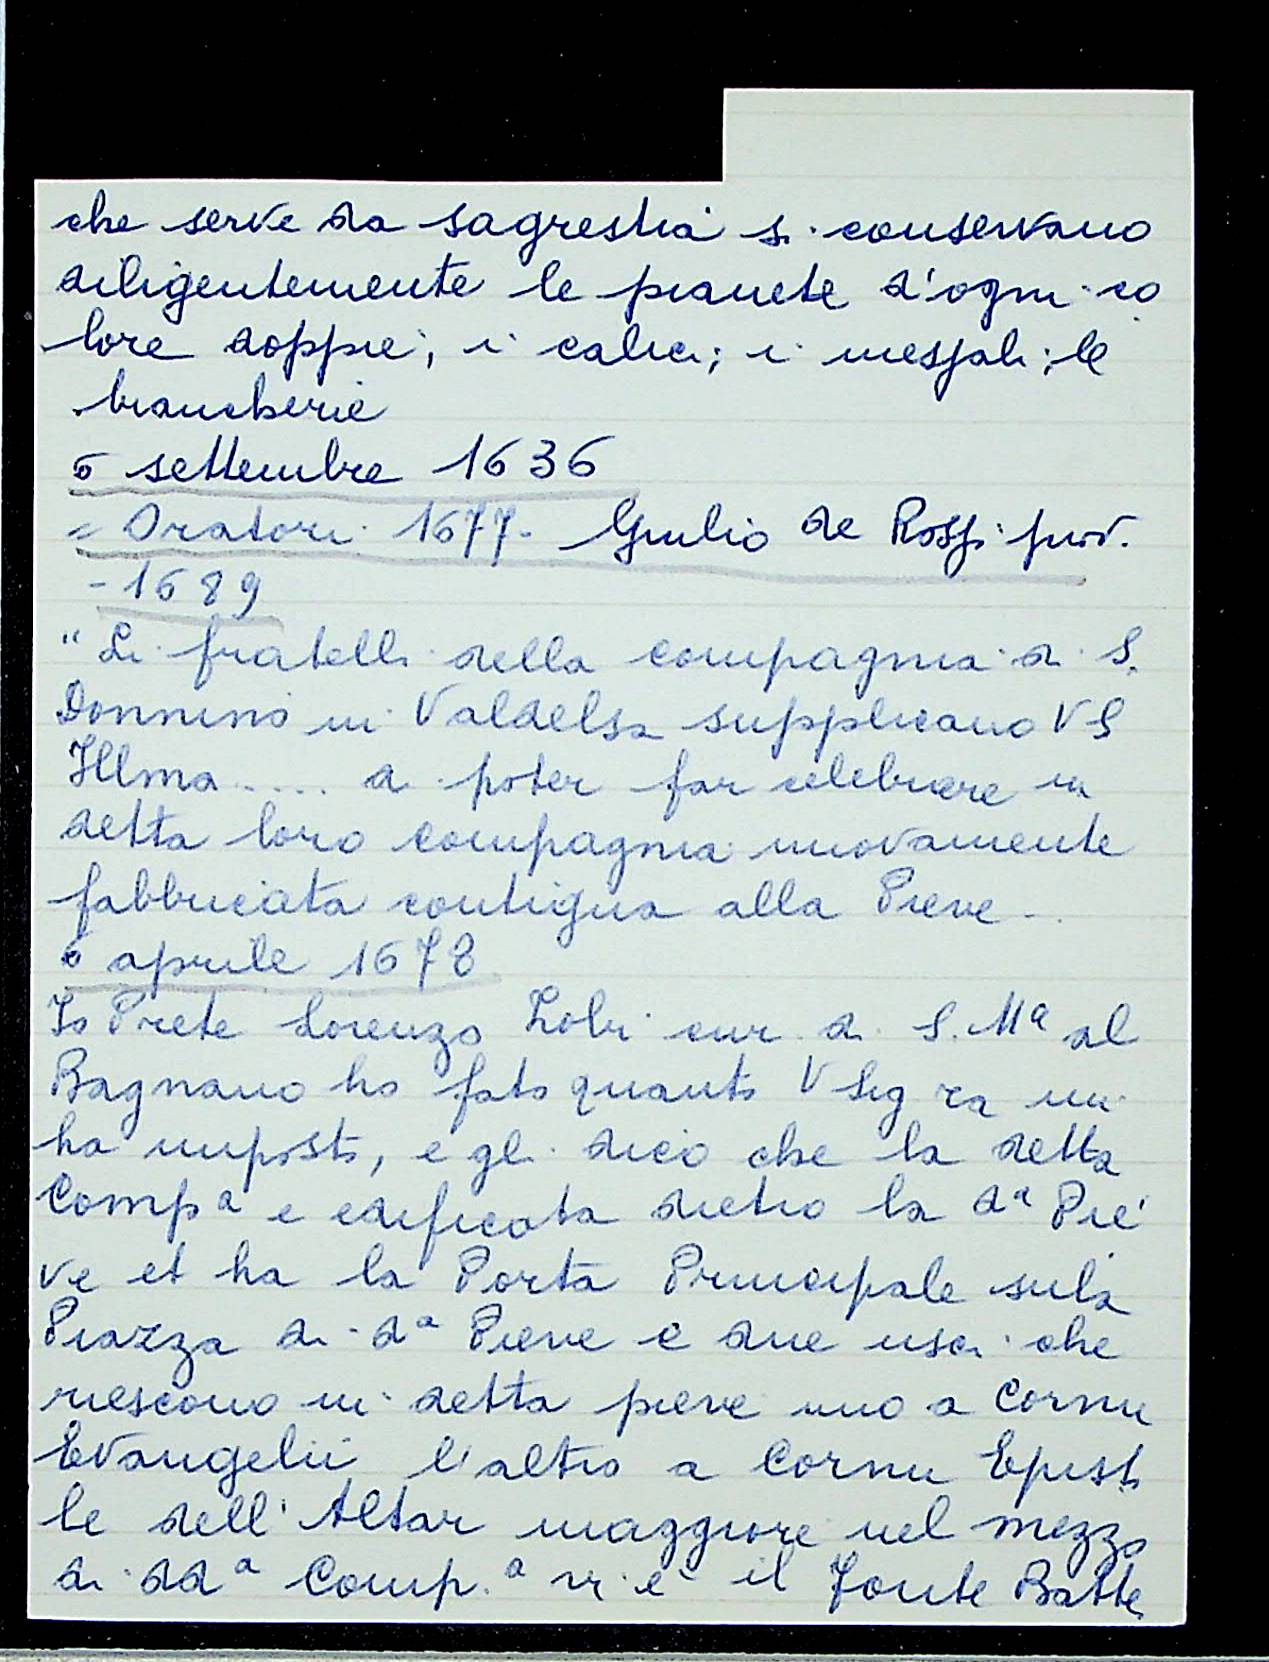 che serve da sagrestia si conservano
diligentemente le pianete d'ogni co
lore doppie, i calici; i messali; le
biancherie
6 settembre 1636
= Oratori 1677- Giulio de Rossi
- 1689
"Li fratelli della compagnia di S.
Donnino in Valdelsa supplicano VS
Illma..... di poter far celebrare in
detta loro compagnia nuovamente
fabbricata contigua alla Pieve...
6 aprile 1678
Io Prete Lorenzo cur. di S. Mª al
Bagnano ho fato quanto V Sig ra mi
ha imposto, e gli dico che la detta
Compª e edificata dietro la dª Pie
ve et ha la Porta Principale sula
Piazza di dª Pieve e due usci che
riescono in detta pieve uno a Cornu
Evangelii l'altro a Cornu Episto
le dell'Altar maggiore nel mezzo
di ddª Comp.ª vi è il Fonte Batte